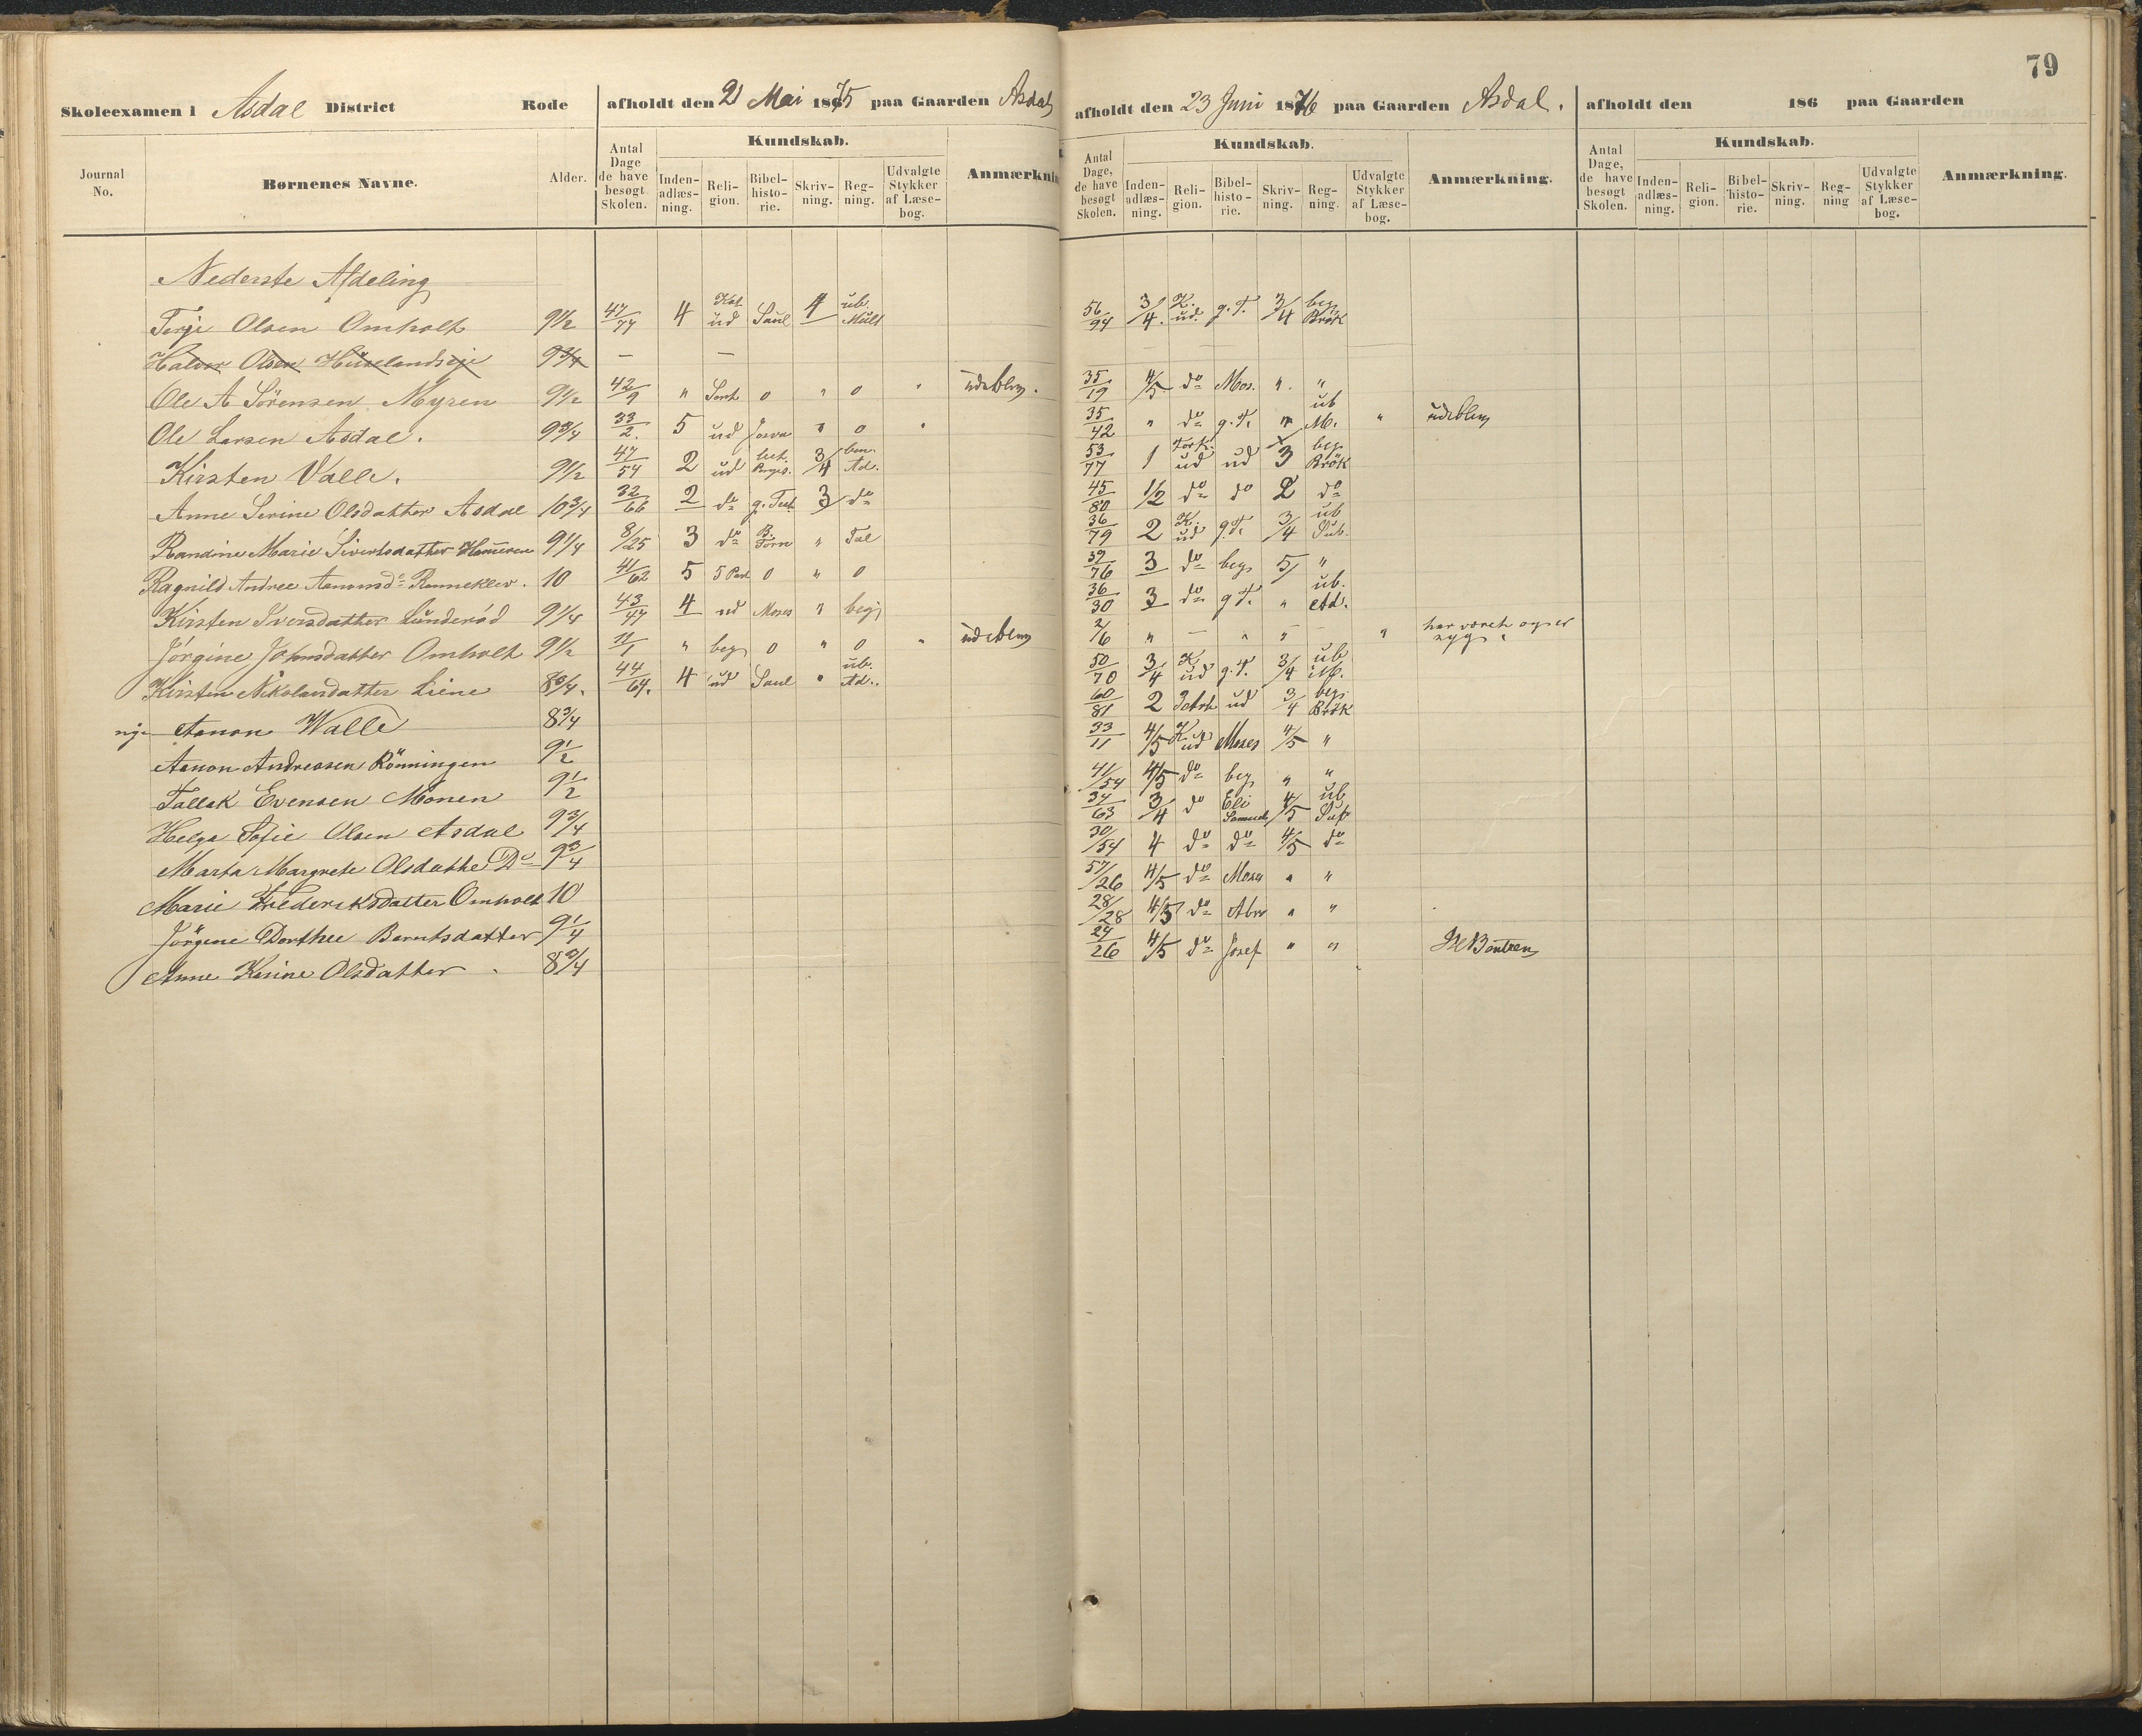 79
Skoleexamen i Asdal District Rode afholdt den 21 Mai 1875 paa Gaarden Asdal
afholdt den 23 Juni 1876 paa Gaarden Asdal. afholdt den 186 paa Gaarden
Journal No. Børnenes Navne. Alder. Antal Dage de have besøgt Skolen. Kundskab. Inden-adlæs-ning. Reli-gion. Bibel-histo-rie. Skriv-ning. Reg-ning. Udvalgte Stykker af Læse-bog. Anmærknin
Antal Dage, de have besøgt Skolen. Kundskab. Inden-adlæs-ning. Reli-gion. Bibel-histo-rie. Skriv-ning. Reg-ning. Udvalgte Stykker af Læse-bog. Anmærkning.
Antal Dage, de have besøgt Skolen. Kundskab. Inden-adlæs-ning. Reli-gion. Bibel-histo-rie. Skriv-ning. Reg-ning Udvalgte Stykker af Læse-bog. Anmærkning.
Nederste Afdeling
Terje Olsen Omholt 9 1/2 47/77 4 Kat ud Saul 4 ub. Mult 56/94 3/4 K. ud. g. T. 3/4 beg. Brök
Halvor Olsen 9 3/4 — —
Ole A Sörensen Myren 9 1/2 42/9 " 0 " 0 " udebleven. 35/19 4/5 do Mos. " "
Ole Larsen Asdal. 9 3/4 33/2. 5 ud Josva " 0 " 35/42 " do g. T. " ub M. " udebleven
Kirsten Valle. 9 1/2 47/54 2 ud 3/4 ben. Ad. 53/77 1 Fork. ud ud 3 beg. Brök
Anne Serine Olsdatter Asdal 10 3/4 32/66 2 do g. Test 3 do 45/80 1/2 do do 2 do
Randine Marie Sivertsdatter 9 1/4 8/25 3 do B. Törn " Tal 36/79 2 K. ud g. T. 3/4 ub Sub.
Ragnild Andree Aanonsd. Renneklev. 10 41/62 5 5 Part 0 " 0 39/76 3 do beg 5 "
Kirsten Iversdatter Lunderöd 9 1/4 43/47 4 ud Moses " beg 36/30 3 do g T. " ub. Ad.
Jörgine Johnsdatter Omholt 9 1/2 11/1 " beg 0 " 0 " udebleven 2/6 " — " " — " har været og er syg.
Kirstine Nikolausdatter Liene 8 3/4. 44/64. 4 ud Saul " ub. Ad. 50/70 3/4 K ud g. T. 3/4 ub
nye Aanon Walle 8 3/4 60/81 2 3 Art ud 3/4 beg. Brök
Aanon Andreasen Rönningen 9 1/2 33/11 4/5 K ud Moses 4/5 "
Tallak Evensen Monen 9 1/2 41/54 4/5 do beg " "
Helga Sofie Olsen Asdal 9 3/4 34/63 3/4 do Eli Samuel 4/5 ub Sub
Marta Margrete Olsdatter Do 9 3/4 30/54 4 do do 4/5 do
Marie Frederiksdatter Omholt 10 57/26 4/5 do Moses " "
Jörgine Dorthee Berntsdatter 9 1/4 28/28 4/5 do Abr " "
Anne Karine Olsdatter 8 3/4 24/26 4/5 do Josef " "